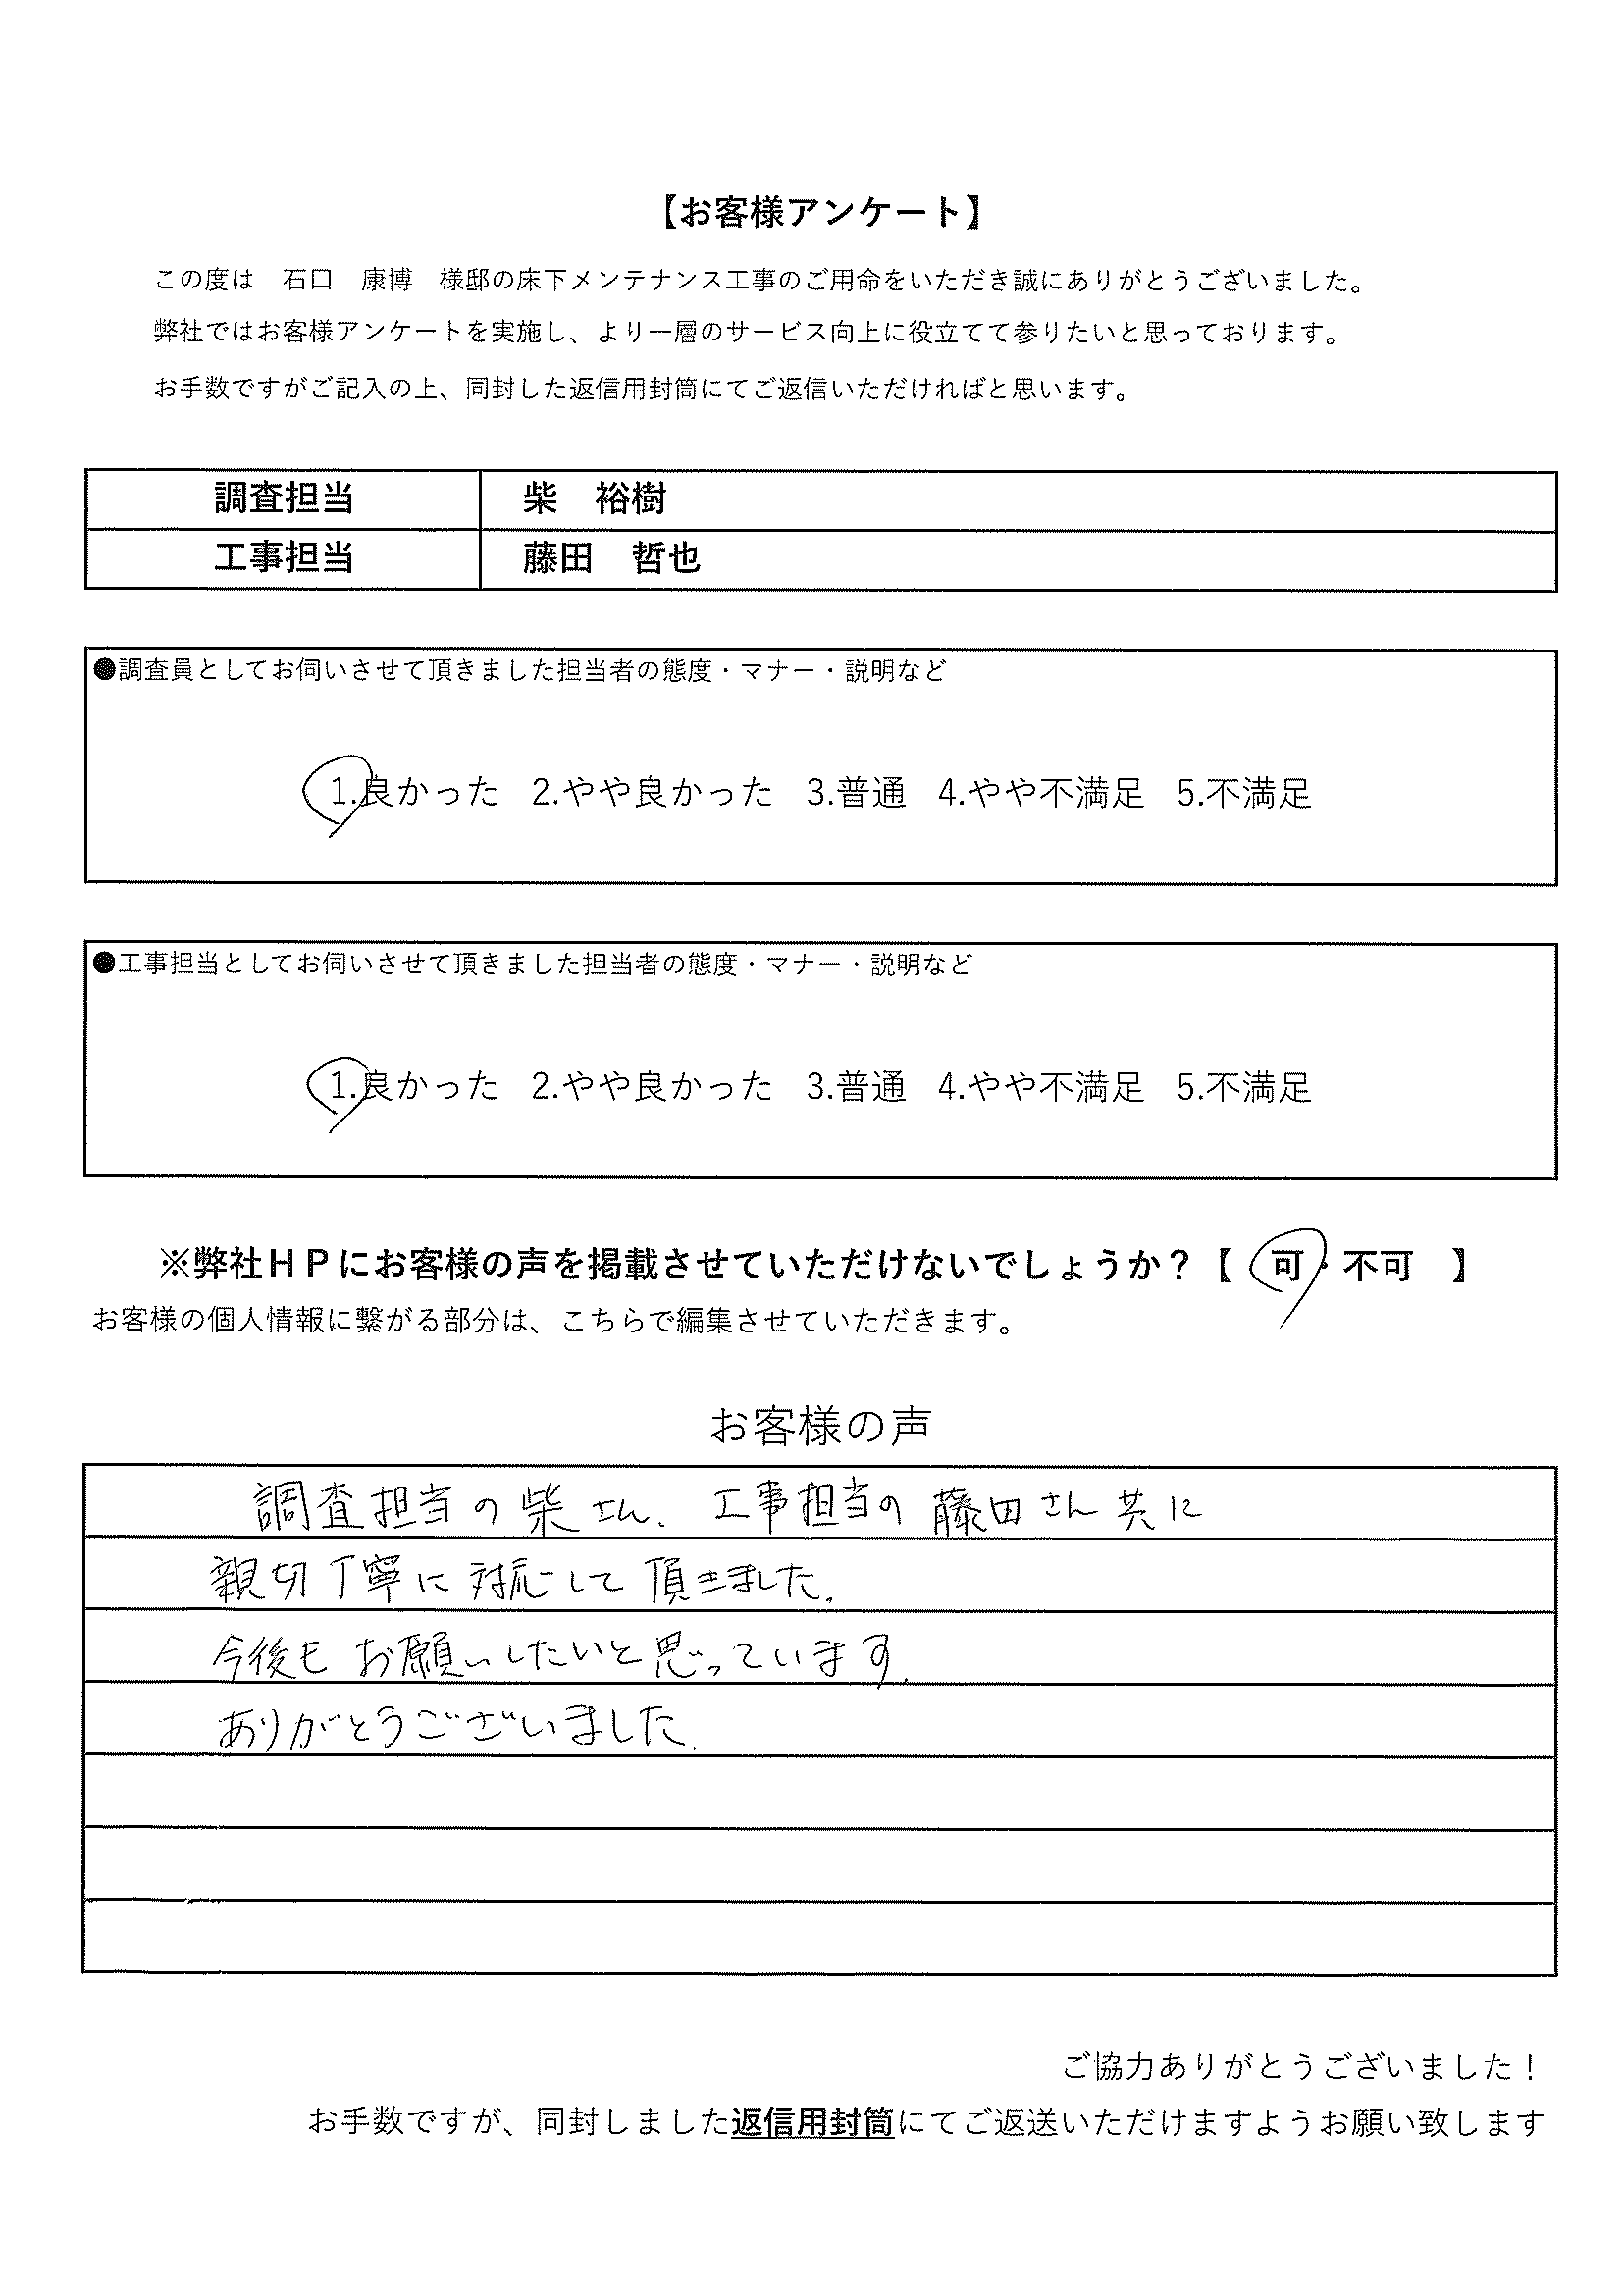 【お客様アンケート】
この度は　石口　康博　様邸の床下メンテナンス工事のご用命をいただき誠にありがとうございました。
弊社ではお客様アンケートを実施し、より一層のサービス向上に役立てて参りたいと思っております。
お手数ですがご記入の上、同封した返信用封筒にてご返信いただければと思います。
調査担当　柴　裕樹
工事担当　藤田　哲也
●調査員としてお伺いさせて頂きました担当者の態度・マナー・説明など
1.良かった　2.やや良かった　3.普通　4.やや不満足　5.不満足
●工事担当としてお伺いさせて頂きました担当者の態度・マナー・説明など
1.良かった　2.やや良かった　3.普通　4.やや不満足　5.不満足
※弊社ＨＰにお客様の声を掲載させていただけないでしょうか？【　可・不可　】
お客様の個人情報に繋がる部分は、こちらで編集させていただきます。
お客様の声
調査担当の柴さん、工事担当の藤田さん共に
親切丁寧に対応して頂きました。
今後もお願いしたいと思っています。
ありがとうございました。
ご協力ありがとうございました！
お手数ですが、同封しました返信用封筒にてご返送いただけますようお願い致します